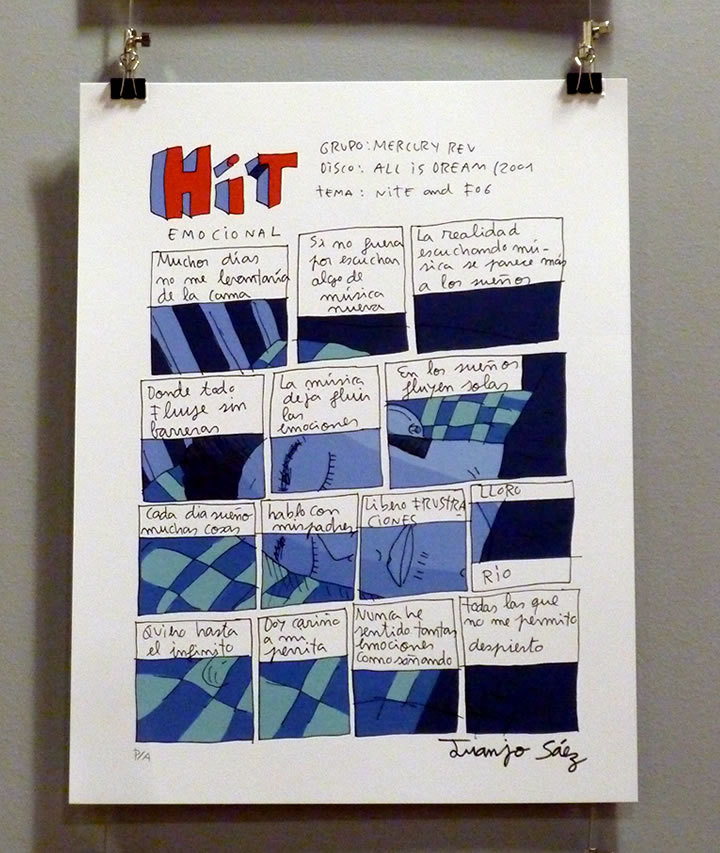 HiT
EMOCIONAL
GRUPO: MERCURY REV
DISCO: ALL iS DREAM/2001
TEMA: NiTE and FOG
Muchos días
no me levantaría
de la cama
Si no fuera
por escuchar
algo de
música
nueva
La realidad
escuchando mú-
sica se parece más
a los sueños
Donde todo
Fluye sin
barreras
La música
deja fluir
las
emociones
En los sueños
fluyen solas
Cada dia sueño
muchas cosas
hablo con
mis padres
Libero FRUSTRA
CiONES
LLORO
RÍO
Quiero hasta
el infinito
Doy cariño
a mi
perrita
Nunca he
sentido tantas
emociones
como soñando
todas las que
no me permito
despierto
P/A
Juanjo Sáez